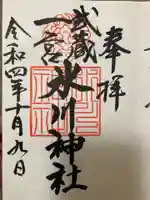 奉拝
武蔵
一宮
氷川神社
令和四年十月九日